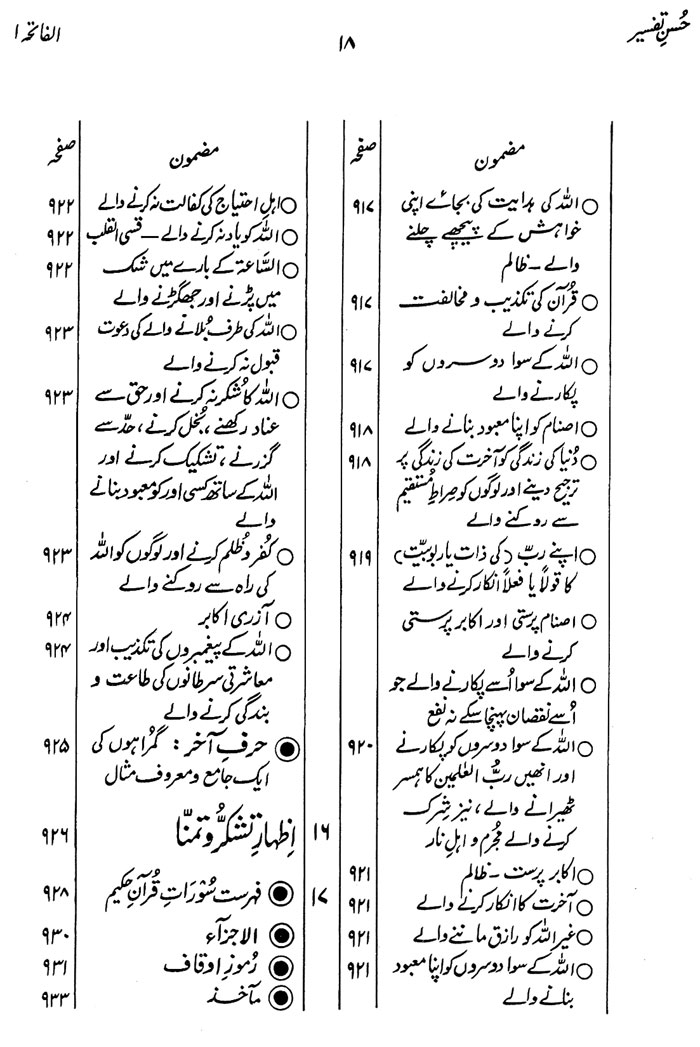 حُسنِ تفسیر
۱۸
الفاتحہ ۱
مضمون صفحہ
○ اللہ کی ہدایت کی بجائے اپنی ۹۱۷
خواہش کے پیچھے چلنے
والے ۔ ظالم
○ قُرآن کی تکذیب و مخالفت ۹۱۷
کرنے والے
○ اللہ کے سوا دوسروں کو ۹۱۷
پکارنے والے
○ اصنام کو اپنا معبود بنانے والے ۹۱۸
○ دُنیا کی زندگی کو آخرت کی زندگی پر ۹۱۸
ترجیح دینے اور لوگوں کو صِراطِ مُستقیم
سے روکنے والے
○ اپنے ربّ (کی ذات یا ربوبیّت) ۹۱۹
کا قولاً یا فعلاً انکار کرنے والے
○ اصنام پرستی اور اکابر پرستی
کرنے والے
○ اللہ کے سوا اُسے پکارنے والے جو
اُسے نقصان پہنچا سکے نہ نفع
○ اللہ کے سوا دوسروں کو پکارنے ۹۲۰
اور انھیں ربُّ العٰلمین کا ہمسر
ٹھیرانے والے ، نیز شِرک
کرنے والے مُجرم و اہلِ نار
○ اکابر پرست ۔ ظالم ۹۲۱
○ آخرت کا انکار کرنے والے ۹۲۱
○ غیراللہ کو رازق ماننے والے ۹۲۱
○ اللہ کے سوا دوسروں کو اپنا معبود ۹۲۱
بنانے والے
مضمون صفحہ
○ اہلِ احتیاج کی کفالت نہ کرنے والے ۹۲۲
○ اللہ کو یاد نہ کرنے والے ۔ قسی القلب ۹۲۲
○ السَّاعۃ کے بارے میں شک ۹۲۲
میں پڑنے اور جھگڑنے والے
○ اللہ کی طرف بُلانے والے کی دعوت ۹۲۳
قبول نہ کرنے والے
○ اللہ کا شُکر نہ کرنے اور حق سے ۹۲۳
عناد رکھنے ، بُخل کرنے ، حدّ سے
گزرنے ، تشکیک کرنے اور
اللہ کے ساتھ کسی اور کو معبود بنانے
والے
○ کُفر و ظُلم کرنے اور لوگوں کو اللہ ۹۲۳
کی راہ سے روکنے والے
○ آزری اکابر ۹۲۴
○ اللہ کے پیغمبروں کی تکذیب اور ۹۲۴
معاشرتی سرطانوں کی طاعت و
بندگی کرنے والے
◉ حرفِ آخر : گمراہوں کی ۹۲۵
ایک جامع و معروف مثال
۱۶ اِظہارِ تشکّر و تمنّا ۹۲۶
۱۷ ◉ فہرست سُوْرَاتِ قُرآنِ حکیم ۹۲۸
◉ الاجزآء ۹۳۰
◉ رُموزِ اوقاف ۹۳۱
◉ مآخذ ۹۳۳